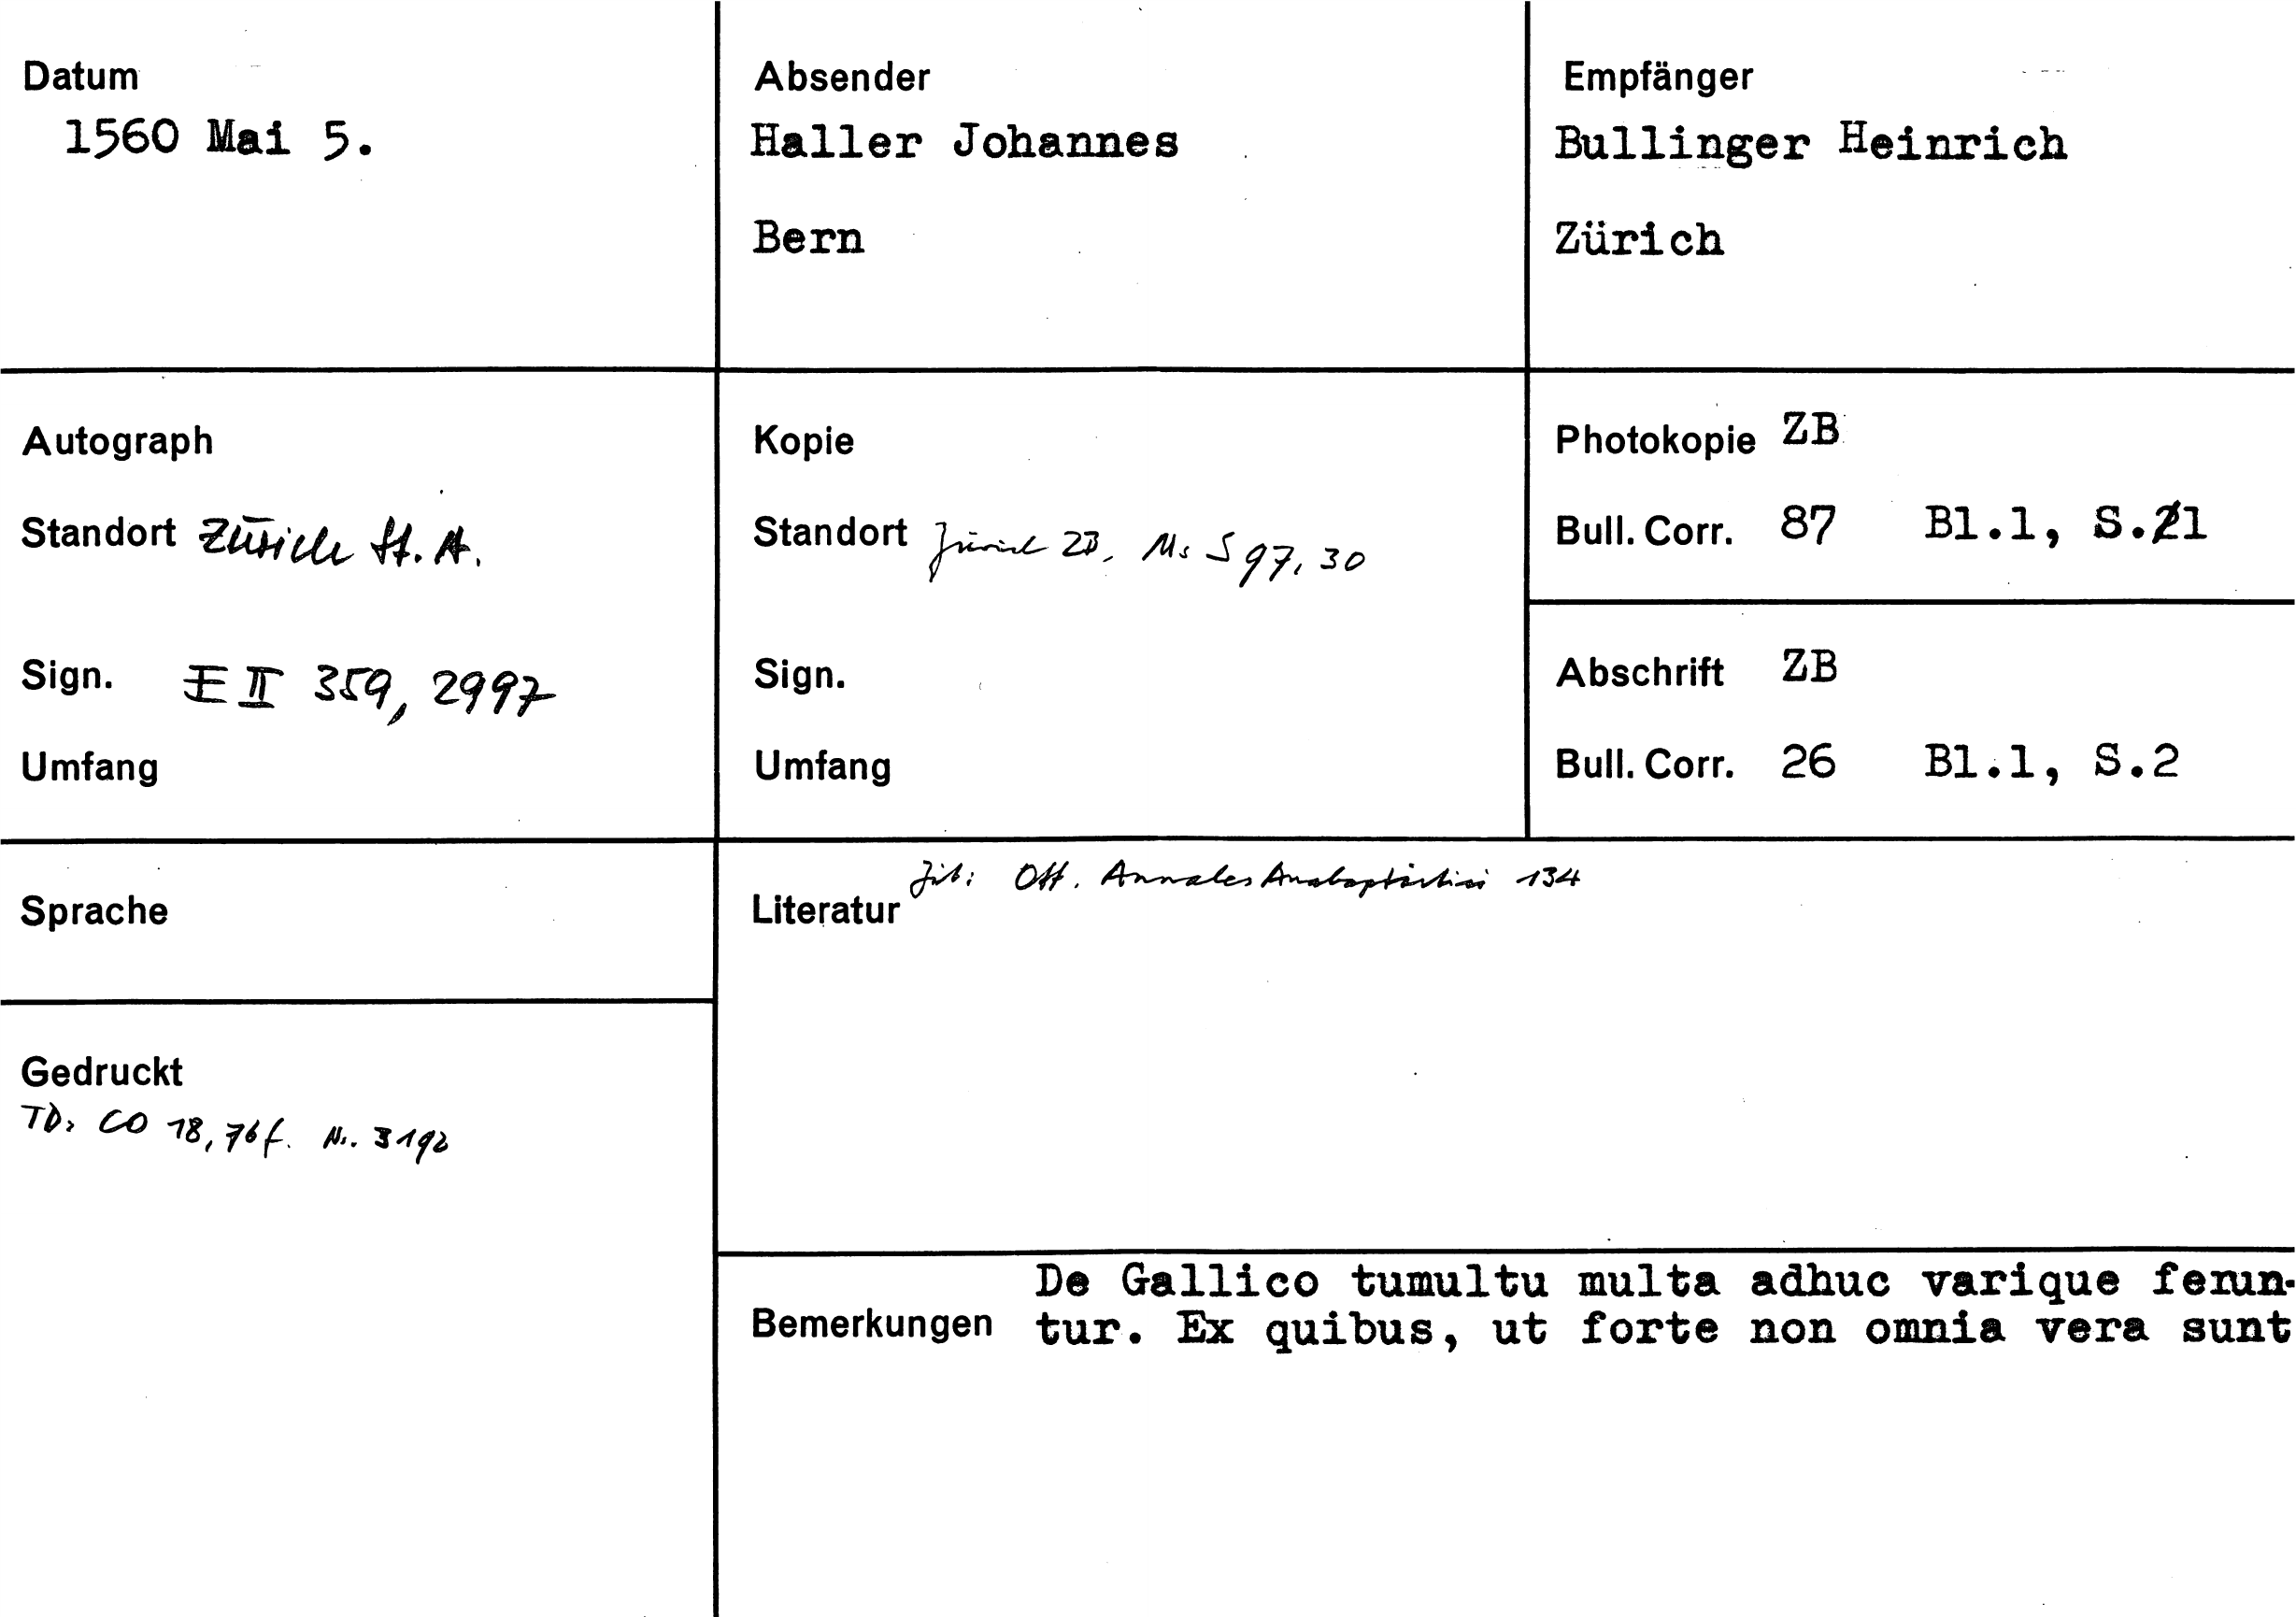 Datum
1560 Mai 5.
Absender
Haller Johannes
Bern
Empfänger
Bullinger Heinrich
Zürich
Autograph
Standort Zürich St. A.
Sign. E II 359, 2997
Umfang
Kopie
Standort Zürich ZB, Ms S 97, 30
Sign.
Umfang
Photokopie ZB
Bull. Corr. 87 Bl.1, S.1
Abschrift ZB
Bull. Corr. 26 Bl.1, S.2
Sprache
Gedruckt
TD: CO 18, 76f. Nr. 3192
Zit: Ott. Annales Anabaptistici 134
Literatur
De Gallico tumultu multa adhuc varique ferun-
Bemerkungen tur. Ex quibus, ut forte non omnia vera sunt